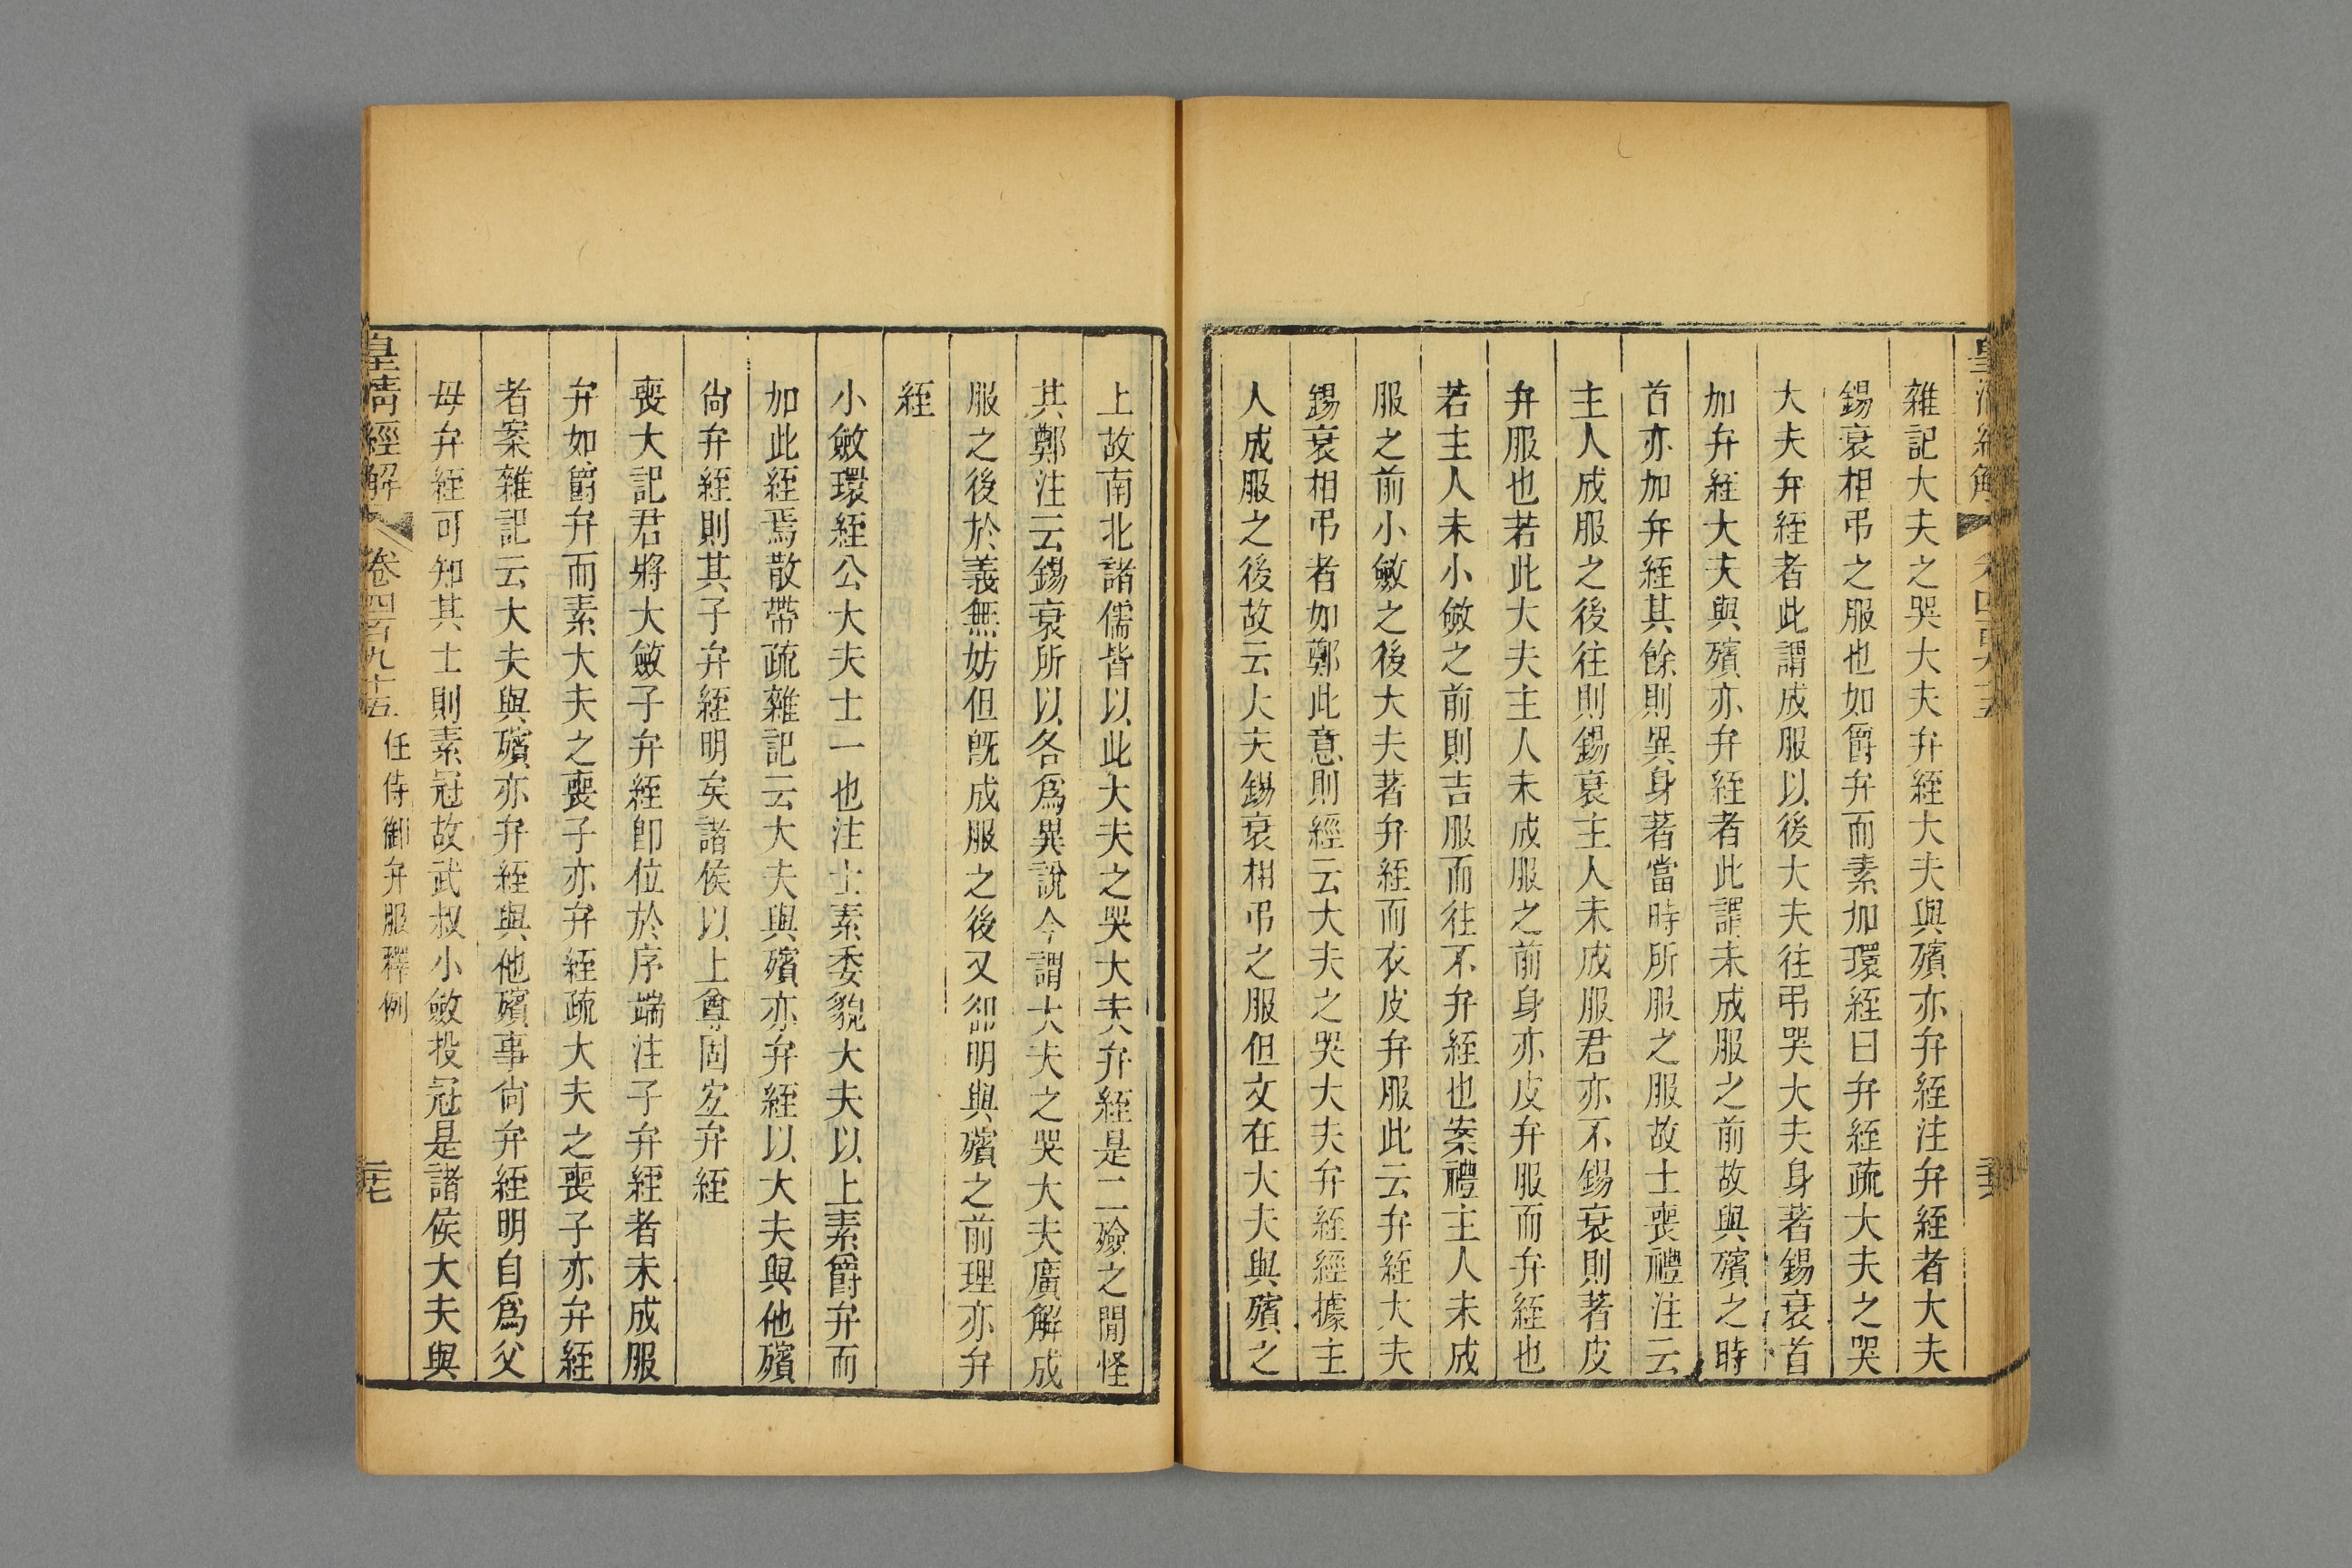 雜記大夫之哭大夫弁絰大夫與殯亦弁絰注弁絰者大夫
錫衰相弔之服也如爵弁而素加環絰曰弁絰疏大夫之哭
大夫弁絰者此謂成服以後大夫往弔哭大夫身著錫衰首
加弁絰大夫與殯亦弁絰者此謂未成服之前故與殯之時
首亦加弁絰其餘則異身著當時所服之服故士喪禮注云
主人成服之後往則錫衰主人未成服君亦不錫衰則著皮
弁服也若此大夫主人未成服之前身亦皮弁服而弁絰也
若主人未小斂之前則吉服而往不弁絰也案禮主人未成
服之前小斂之後大夫著弁絰而衣皮弁服此云弁絰大夫
錫衰相弔者如鄭此意則經云大夫之哭大夫弁絰經據主
人成服之後故云大夫錫衰相弔之服但文在大夫與殯之
上故南北諸儒皆以此大夫之哭大夫弁絰是二殮之閒怪
其鄭注云錫衰所以各爲異說今謂大夫之哭大夫廣解成
服之後於義無妨但旣成服之後又卻明與殯之前理亦弁
絰
小斂環絰公大夫士一也注士素委貌大夫以上素爵弁而
加此絰焉散帶疏雜記云大夫與殯亦弁絰以大夫與他殯
尙弁絰則其子弁絰明矣諸侯以上尊固宜弁絰
喪大記君將大斂子弁絰卽位於序端注子弁絰者未成服
弁如爵弁而素大夫之喪子亦弁絰疏大夫之喪子亦弁絰
者案雜記云大夫與殯亦弁絰與他殯事尙弁絰明自爲父
母弁絰可知其士則素冠故武叔小斂投冠是諸侯大夫與
皇清經解 卷四百九十五 任侍御弁服釋例 二七